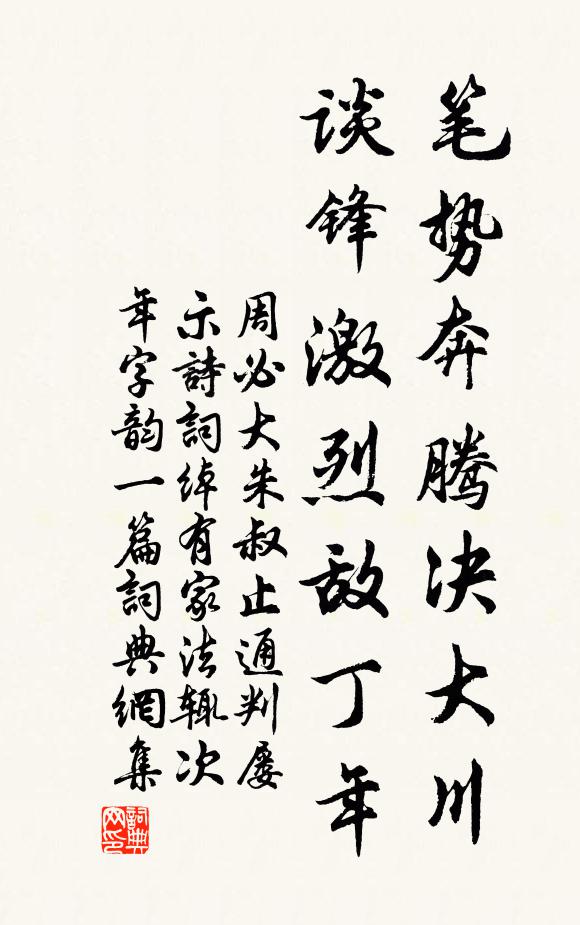 笔势奔腾决大川
谈锋激烈敌丁年
周必大朱叔止通判屡
示詩詞绰有家法辄次
年字韵一篇詞典網集
詞典网印